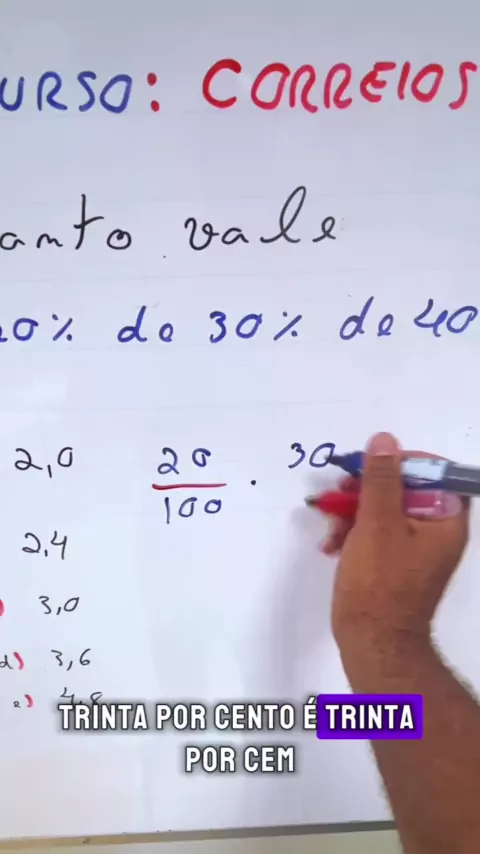 URSO: CORREIOS
anto vale
20% de 30% de 40
2,0
20
100
.
30
2,4
) 3,0
d) 3,6
e) 4,8
TRINTA POR CENTO É TRINTA
POR CEM